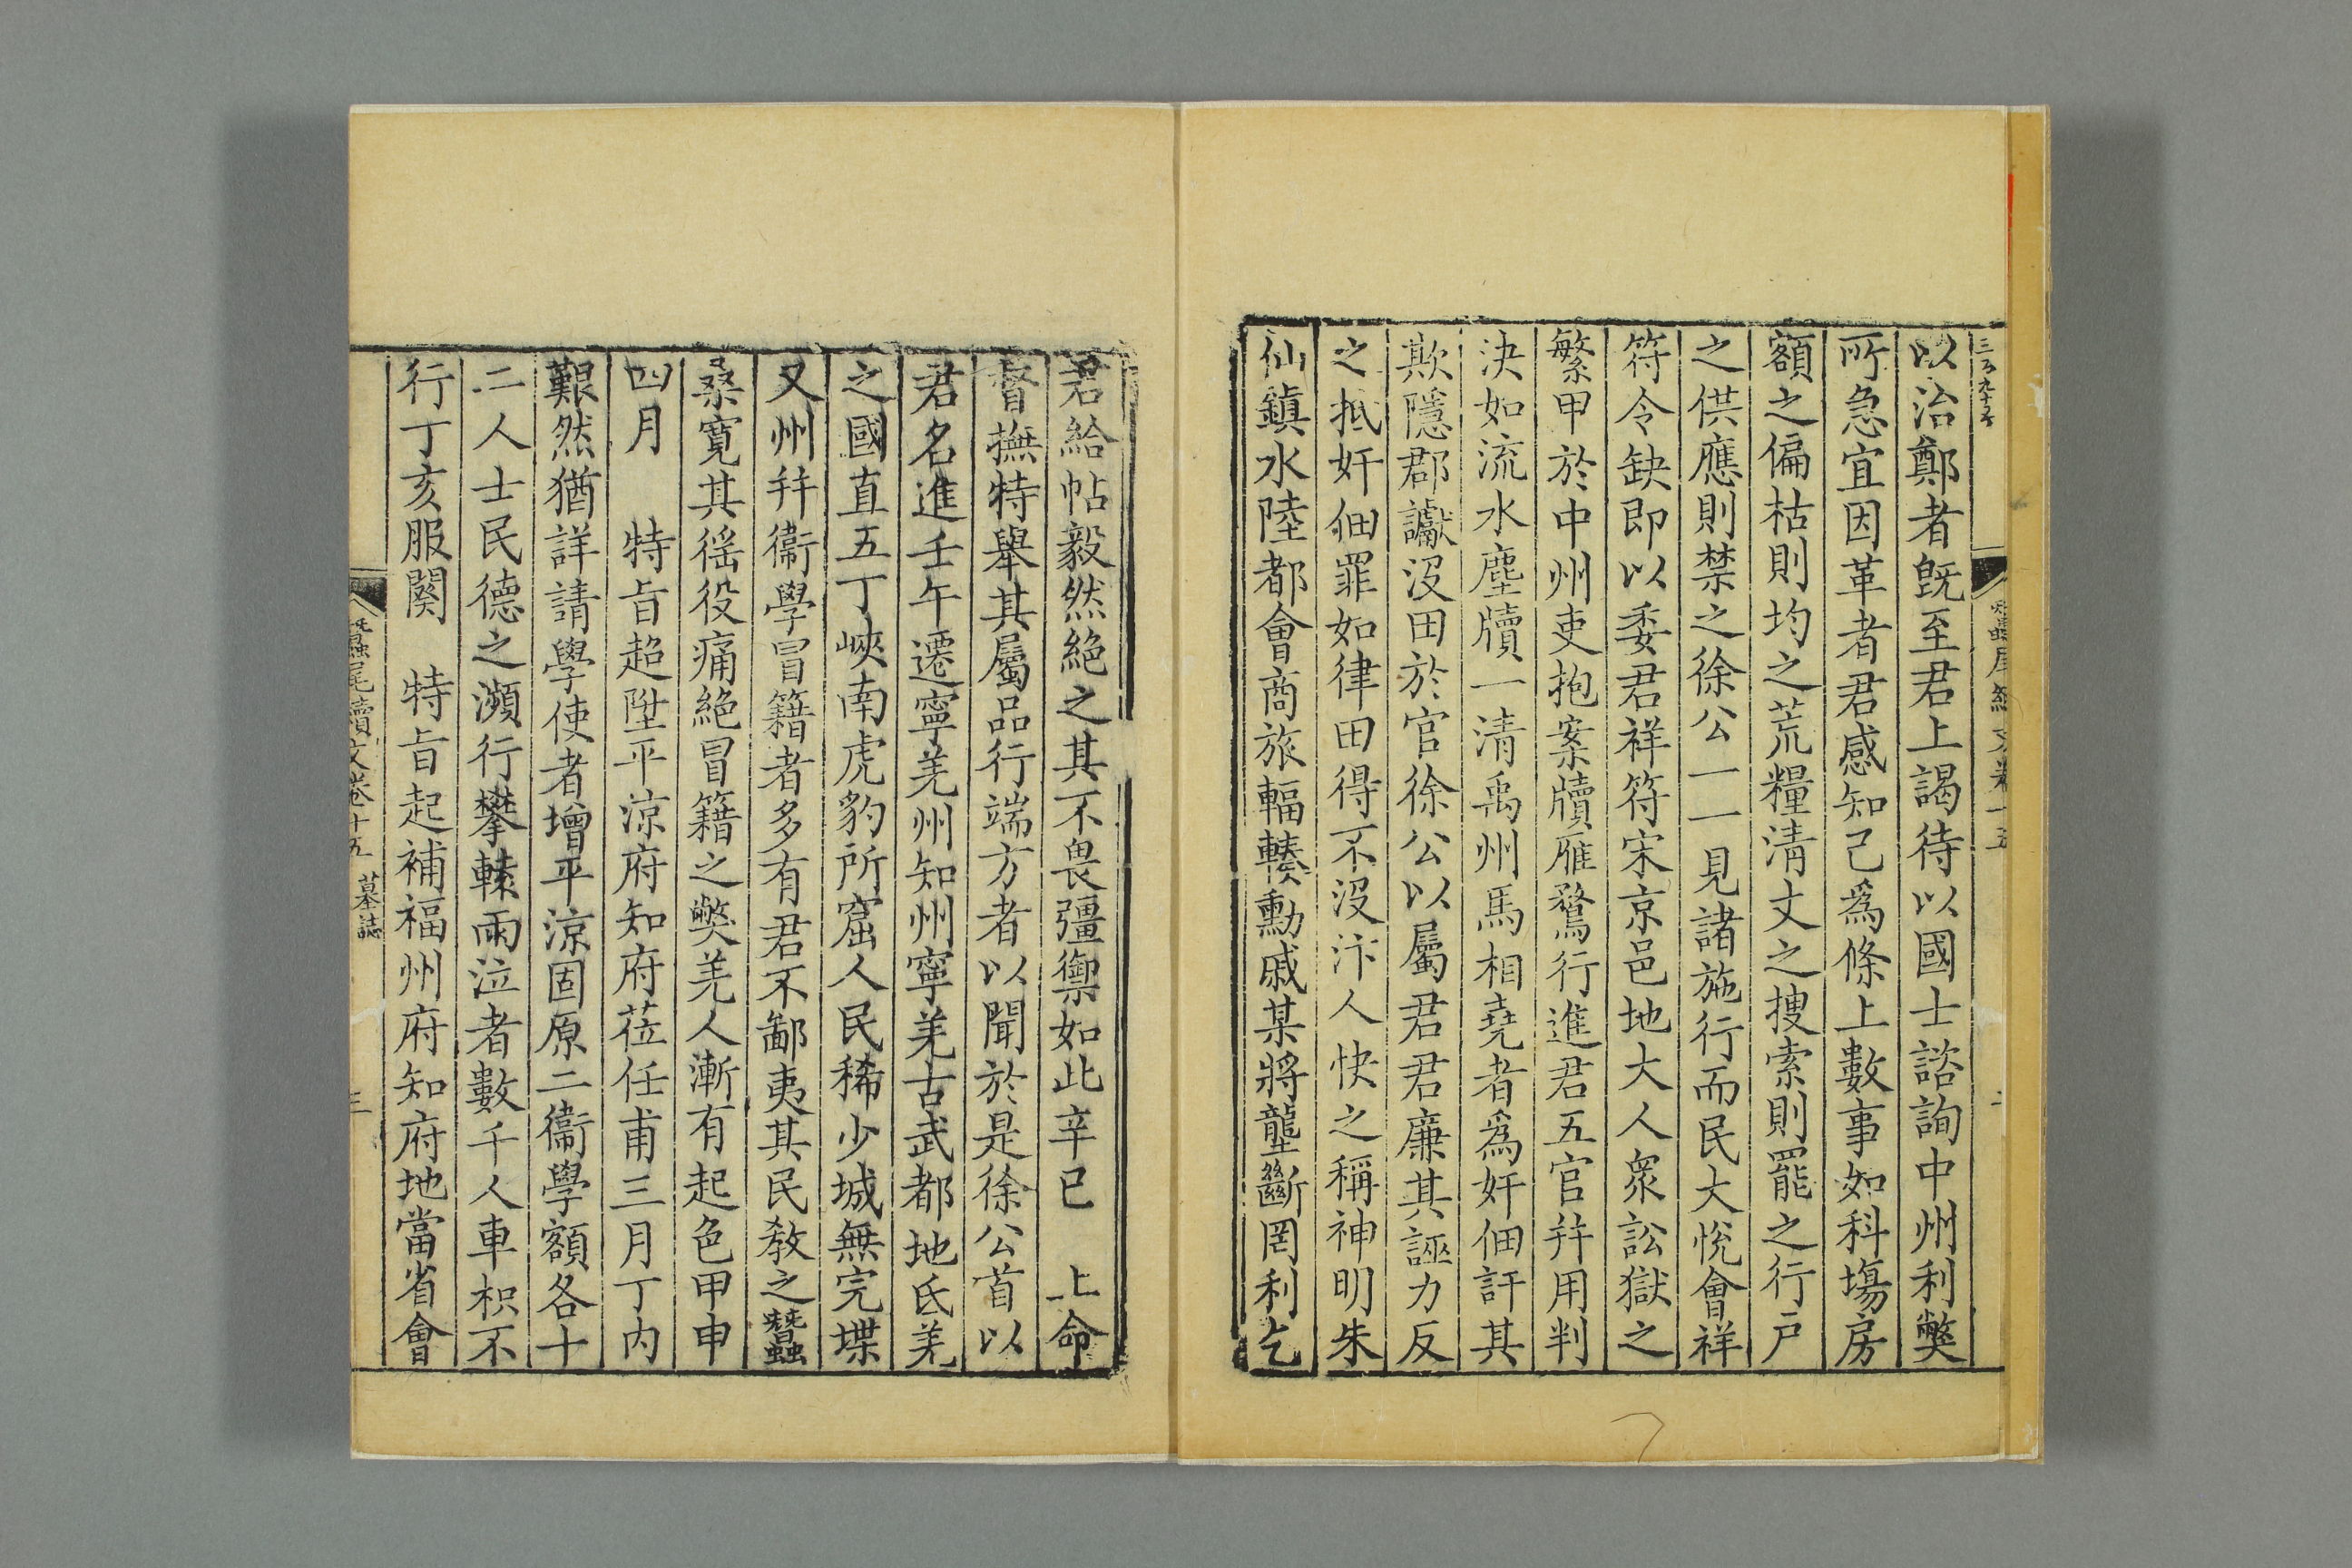 三百九十五
蠶尾續文卷十五
以治鄭者旣至君上謁待以國士諮詢中州利獘
所急宜因革者君感知己爲條上數事如科塲房
額之偏枯則均之荒糧清丈之搜索則罷之行戸
之供應則禁之徐公一一見諸施行而民大悅會祥
符令缺即以委君祥符宋京邑地大人衆訟獄之
繁甲於中州吏抱案牘雁鶩行進君五官幷用判
決如流水塵牘一清禹州馬相堯者爲奸佃訐其
欺隱郡讞没田於官徐公以屬君君廉其誣力反
之抵奸佃罪如律田得不没汴人快之稱神明朱
仙鎮水陸都會商旅輻輳勳戚某將壟斷罔利乞
君給帖毅然絶之其不畏彊禦如此辛巳 上命
督撫特舉其屬品行端方者以聞於是徐公首以
君名進壬午遷寧羌州知州寧羌古武都地氐羌
之國直五丁峽南虎豹所窟人民稀少城無完堞
又州幷衞學冒籍者多有君不鄙夷其民敎之蠶
桑寬其徭役痛絶冒籍之獘羌人漸有起色甲申
四月 特旨超陞平涼府知府莅任甫三月丁内
艱然猶詳請學使者增平涼固原二衞學額各十
二人士民德之瀕行攀轅雨泣者數千人車枳不
行丁亥服闋 特旨起補福州府知府地當省會
蠶尾續文卷十五 墓誌 三